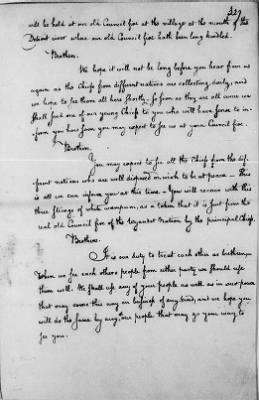 329
will be held at our old Council fire at the village at the mouth of the
Detroit river where our old Council fire hath been long kindled.
Brethren.
We hope it will not be long before you hear from us
again as the Chiefs from different nations are collecting, daily, and
we hope to see them all here shortly. So soon as they are all come we
shall send one of our young Chiefs to you who will have power to in-
form you how soon you may expect to see us at your Council fire.
Brethren.
You may expect to see all the Chiefs from the dif-
ferent nations who are well disposed or wish to be at peace — This
is all we can inform you at this time. — You will receive with this
three strings of white wampum, as a token that it is sent from the
real old Council fire of the Wyandot Nation by the principal Chiefs.
Brethren.
It is our duty to treat each other as brethren
When we see each others people from either party we should use
them well. We shall use any of your people as well as in our power
that may come this way on business of any kind, and we hope you
will do the same by any our people that may go your way to
see you.